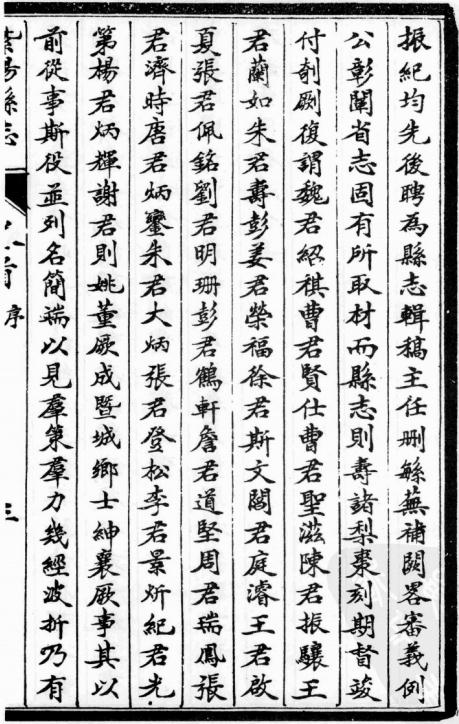 振紀均先後聘為縣志輯稿主任刪緐蕪補闕畧審義例
公彰闡省志固有所取材而縣志則壽諸梨棗刻期督竣
付剞劂復謂魏君紹祺曹君賢仕曹君聖滋陳君振驤王
君蘭如朱君壽彭姜君榮福徐君斯文閻君庭濬王君啟
夏張君佩銘劉君明珊彭君鶴軒詹君道堅周君瑞鳳張
君濟時唐君炳鑾朱君大炳張君登松李君景炘紀君光
第楊君炳輝謝君則姚董厥成暨城鄉士紳襄厥事其以
前從事斯役並列名簡端以見羣策羣力幾經波折乃有
紫陽縣志
首
序
三